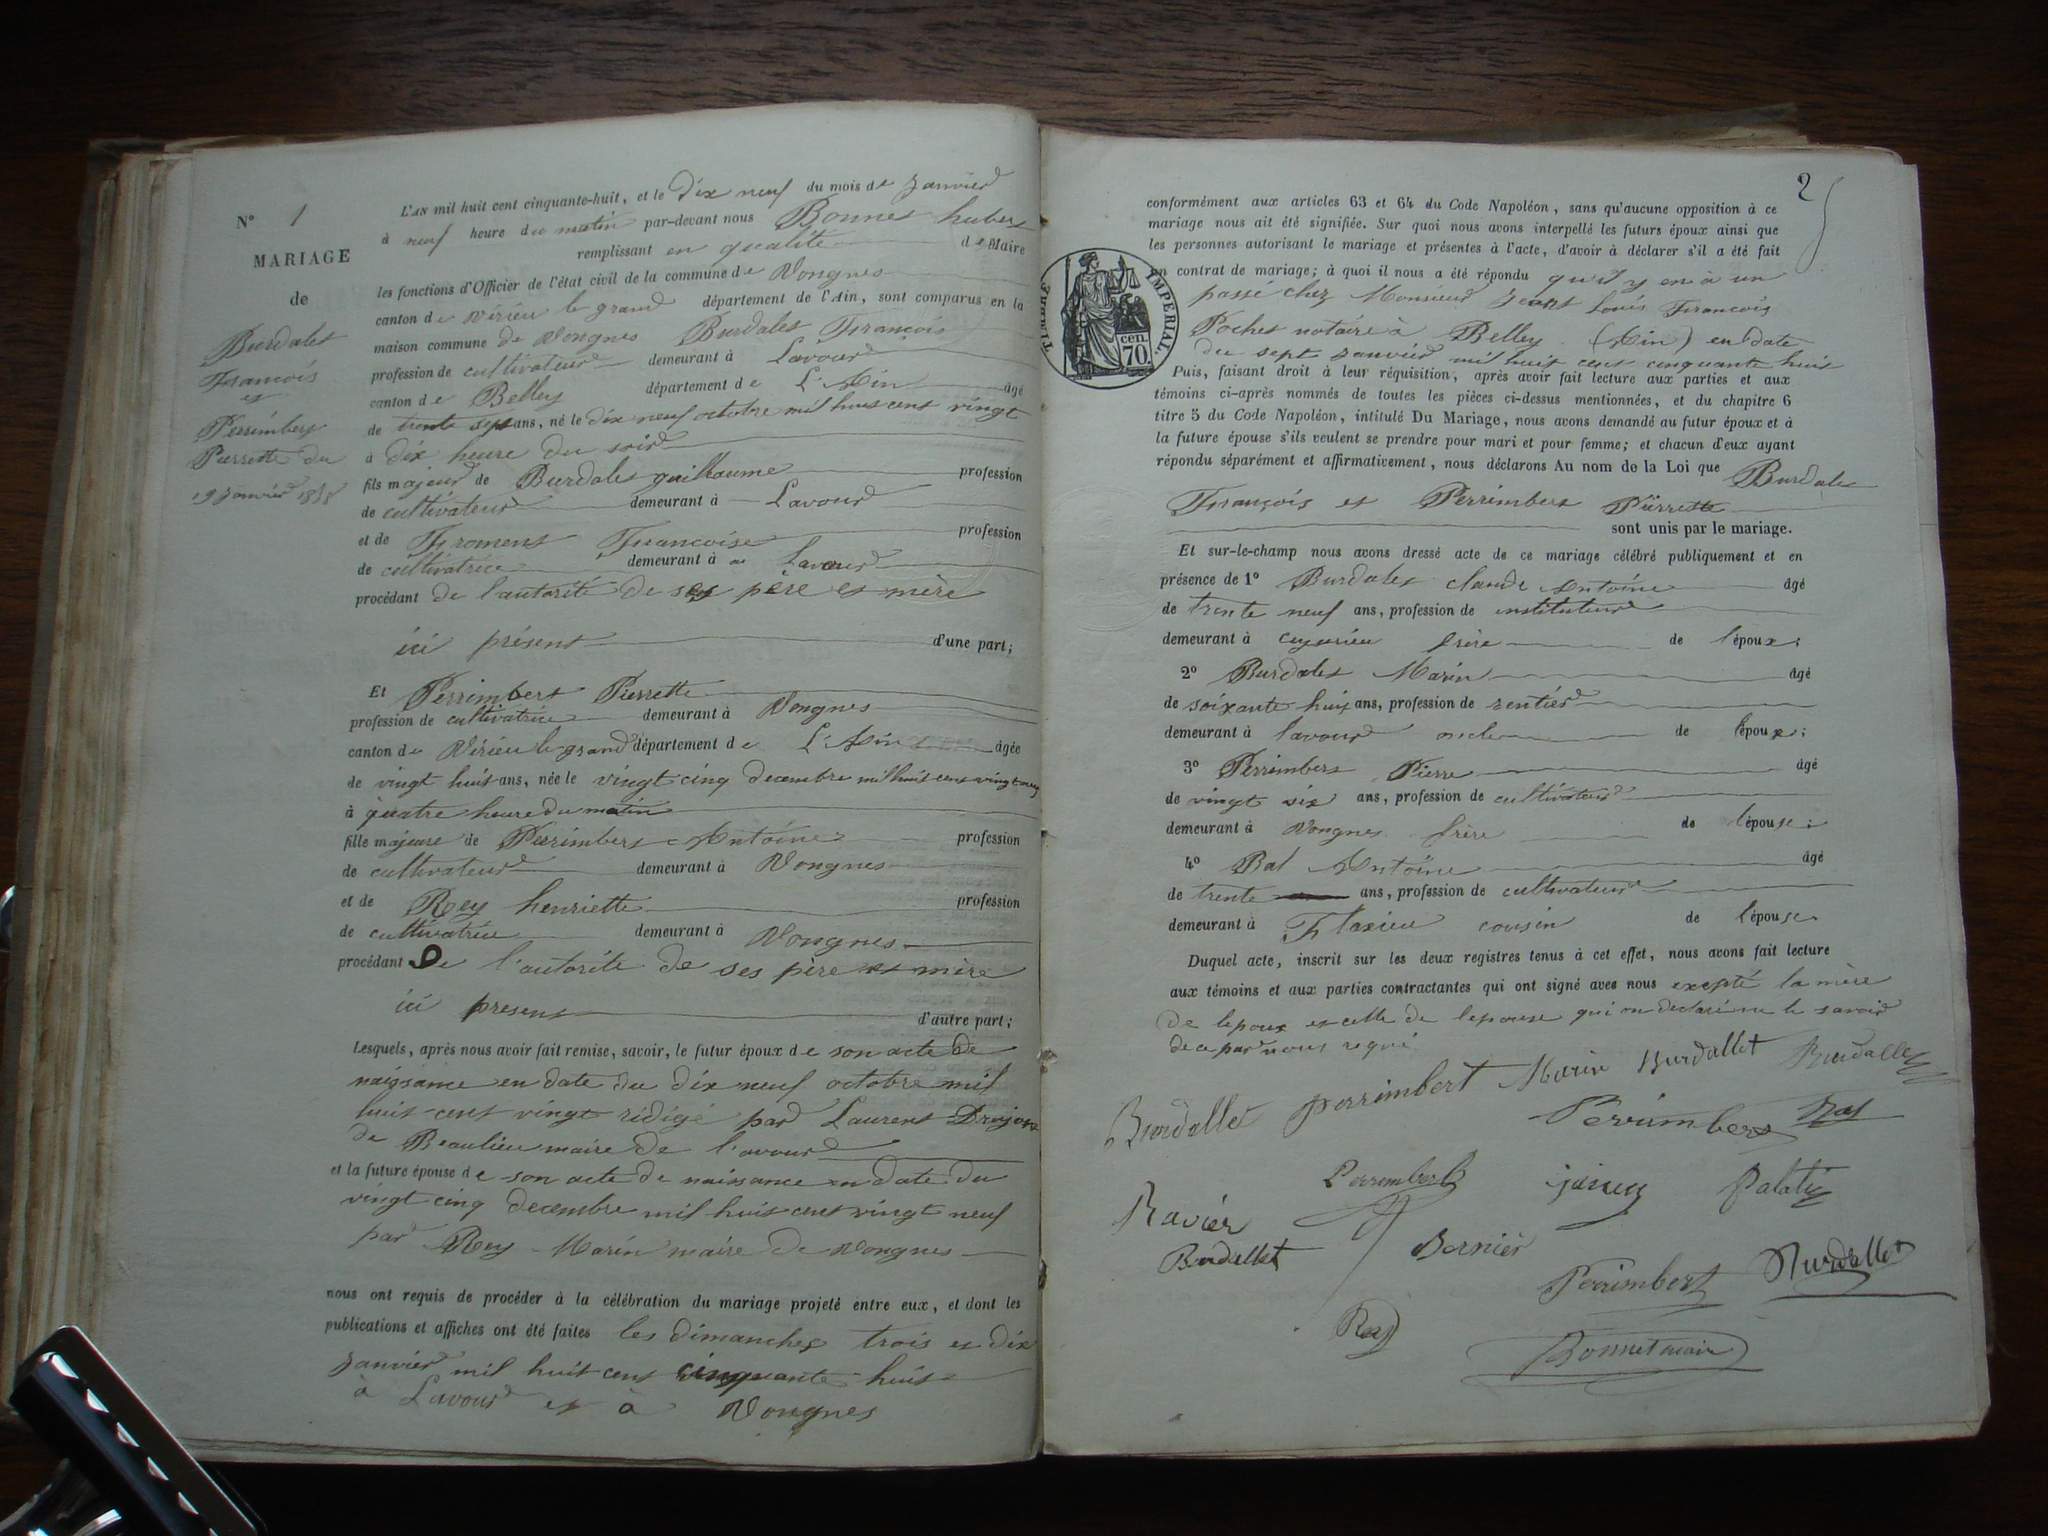 N° 1
MARIAGE
de
Burdalet
François
et
Perrimbert
Pierrette du
19 Janvier 1858
L'AN mil huit cent cinquante-huit, et le dix neuf du mois de Janvier
à neuf heure du matin par-devant nous Bonnet huber
remplissant en qualité de Maire
les fonctions d'Officier de l'état civil de la commune de Vongnes
canton de Virieu le grand département de l'Ain, sont comparus en la
maison commune de Vongnes Burdalet François
profession de cultivateur demeurant à Lavour
canton de Belley département de L'Ain âgé
de trente sept ans, né le dix neuf octobre mil huit cent vingt
à dix heure du soir
fils majeur de Burdalet guillaume profession
de cultivateur demeurant à Lavour
et de Froment Francoise profession
de cultivatrice demeurant à Lavour
procédant de l'autorité de ses père et mère
ici présent d'une part;
Et Perrimbert Pierrette
profession de cultivatrice demeurant à Vongnes
canton de Virieu le grand département de L'Ain âgée
de vingt huit ans, née le vingt cinq decembre mil huit cent vingt neuf
à quatre heure du matin
fille majeure de Perrimbert Antoine profession
de cultivateur demeurant à Vongnes
et de Rey henriette profession
de cultivatrice demeurant à Vongnes
procédant De l'autorité de ses père et mère
ici present d'autre part;
Lesquels, après nous avoir fait remise, savoir, le futur époux de son acte de
naissance en date du dix neuf octobre mil
huit cent vingt rédigé par Laurent Drujon
de Beaulieu maire de Lavour
et la future épouse de son acte de naissance en date du
vingt cinq decembre mil huit cent vingt neuf
par Rey Marin maire de Vongnes
nous ont requis de procéder à la célébration du mariage projeté entre eux, et dont les
publications et affiches ont été faites les dimanches trois et dix
Janvier mil huit cent cinquante huit
à Lavour et à Vongnes
2
conformément aux articles 63 et 64 du Code Napoléon, sans qu'aucune opposition à ce
mariage nous ait été signifiée. Sur quoi nous avons interpellé les futurs époux ainsi que
les personnes autorisant le mariage et présentes à l'acte, d'avoir à déclarer s'il a été fait
un contrat de mariage; à quoi il nous a été répondu qu'il y en à un
passé chez Monsieur Jean Louis Francois
Pochet notaire à Belley (Ain) en date
du sept Janvier mil huit cent cinquante huit
TIMBRE IMPÉRIAL.
70. cen.
Puis, faisant droit à leur réquisition, après avoir fait lecture aux parties et aux
témoins ci-après nommés de toutes les pièces ci-dessus mentionnées, et du chapitre 6
titre 5 du Code Napoléon, intitulé Du Mariage, nous avons demandé au futur époux et à
la future épouse s'ils veulent se prendre pour mari et pour femme; et chacun d'eux ayant
répondu séparément et affirmativement, nous déclarons Au nom de la Loi que Burdalet
François et Perrimbert Pierrette
sont unis par le mariage.
Et sur-le-champ nous avons dressé acte de ce mariage célébré publiquement et en
présence de 1° Burdalet claude Antoine âgé
de trente neuf ans, profession de instituteur
demeurant à frère de l'époux;
2° Burdalet Marin âgé
de soixante huit ans, profession de rentier
demeurant à lavour oncle de l'époux;
3° Perrimbert Pierre âgé
de vingt six ans, profession de cultivateur
demeurant à Vongnes frère de l'épouse;
4° Bal Antoine âgé
de trente ans, profession de cultivateur
demeurant à Flaxieu cousin de l'épouse
Duquel acte, inscrit sur les deux registres tenus à cet effet, nous avons fait lecture
aux témoins et aux parties contractantes qui ont signé avec nous excepté la mère
de lepoux et celle de lepouse qui on declaré ne le savoir
de ce par nous requi
Burdallet perrimbert Marin Burdallet Burdallet
Perrimbert Bal
Perrimbert Palatin
Ravier
Burdallet Bernier
Perrimbert Burdallet
Rey
Bonnet maire